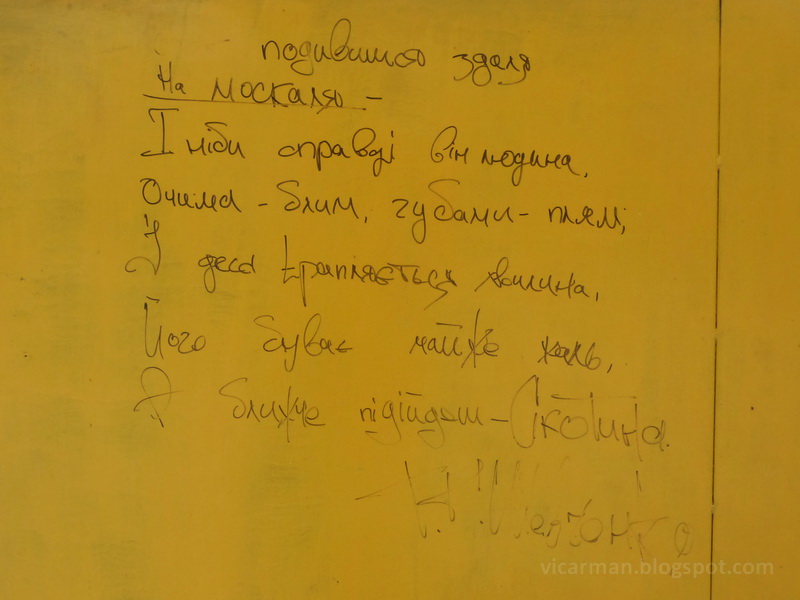 подивишся здаля
На москаля –
І ніби справді він людина,
Очима - блим, губами - плям,
І десь трапляється хвилина,
Його буває майже жаль,
А ближче підійдеш – Скотина.
vicarman.blogspot.com